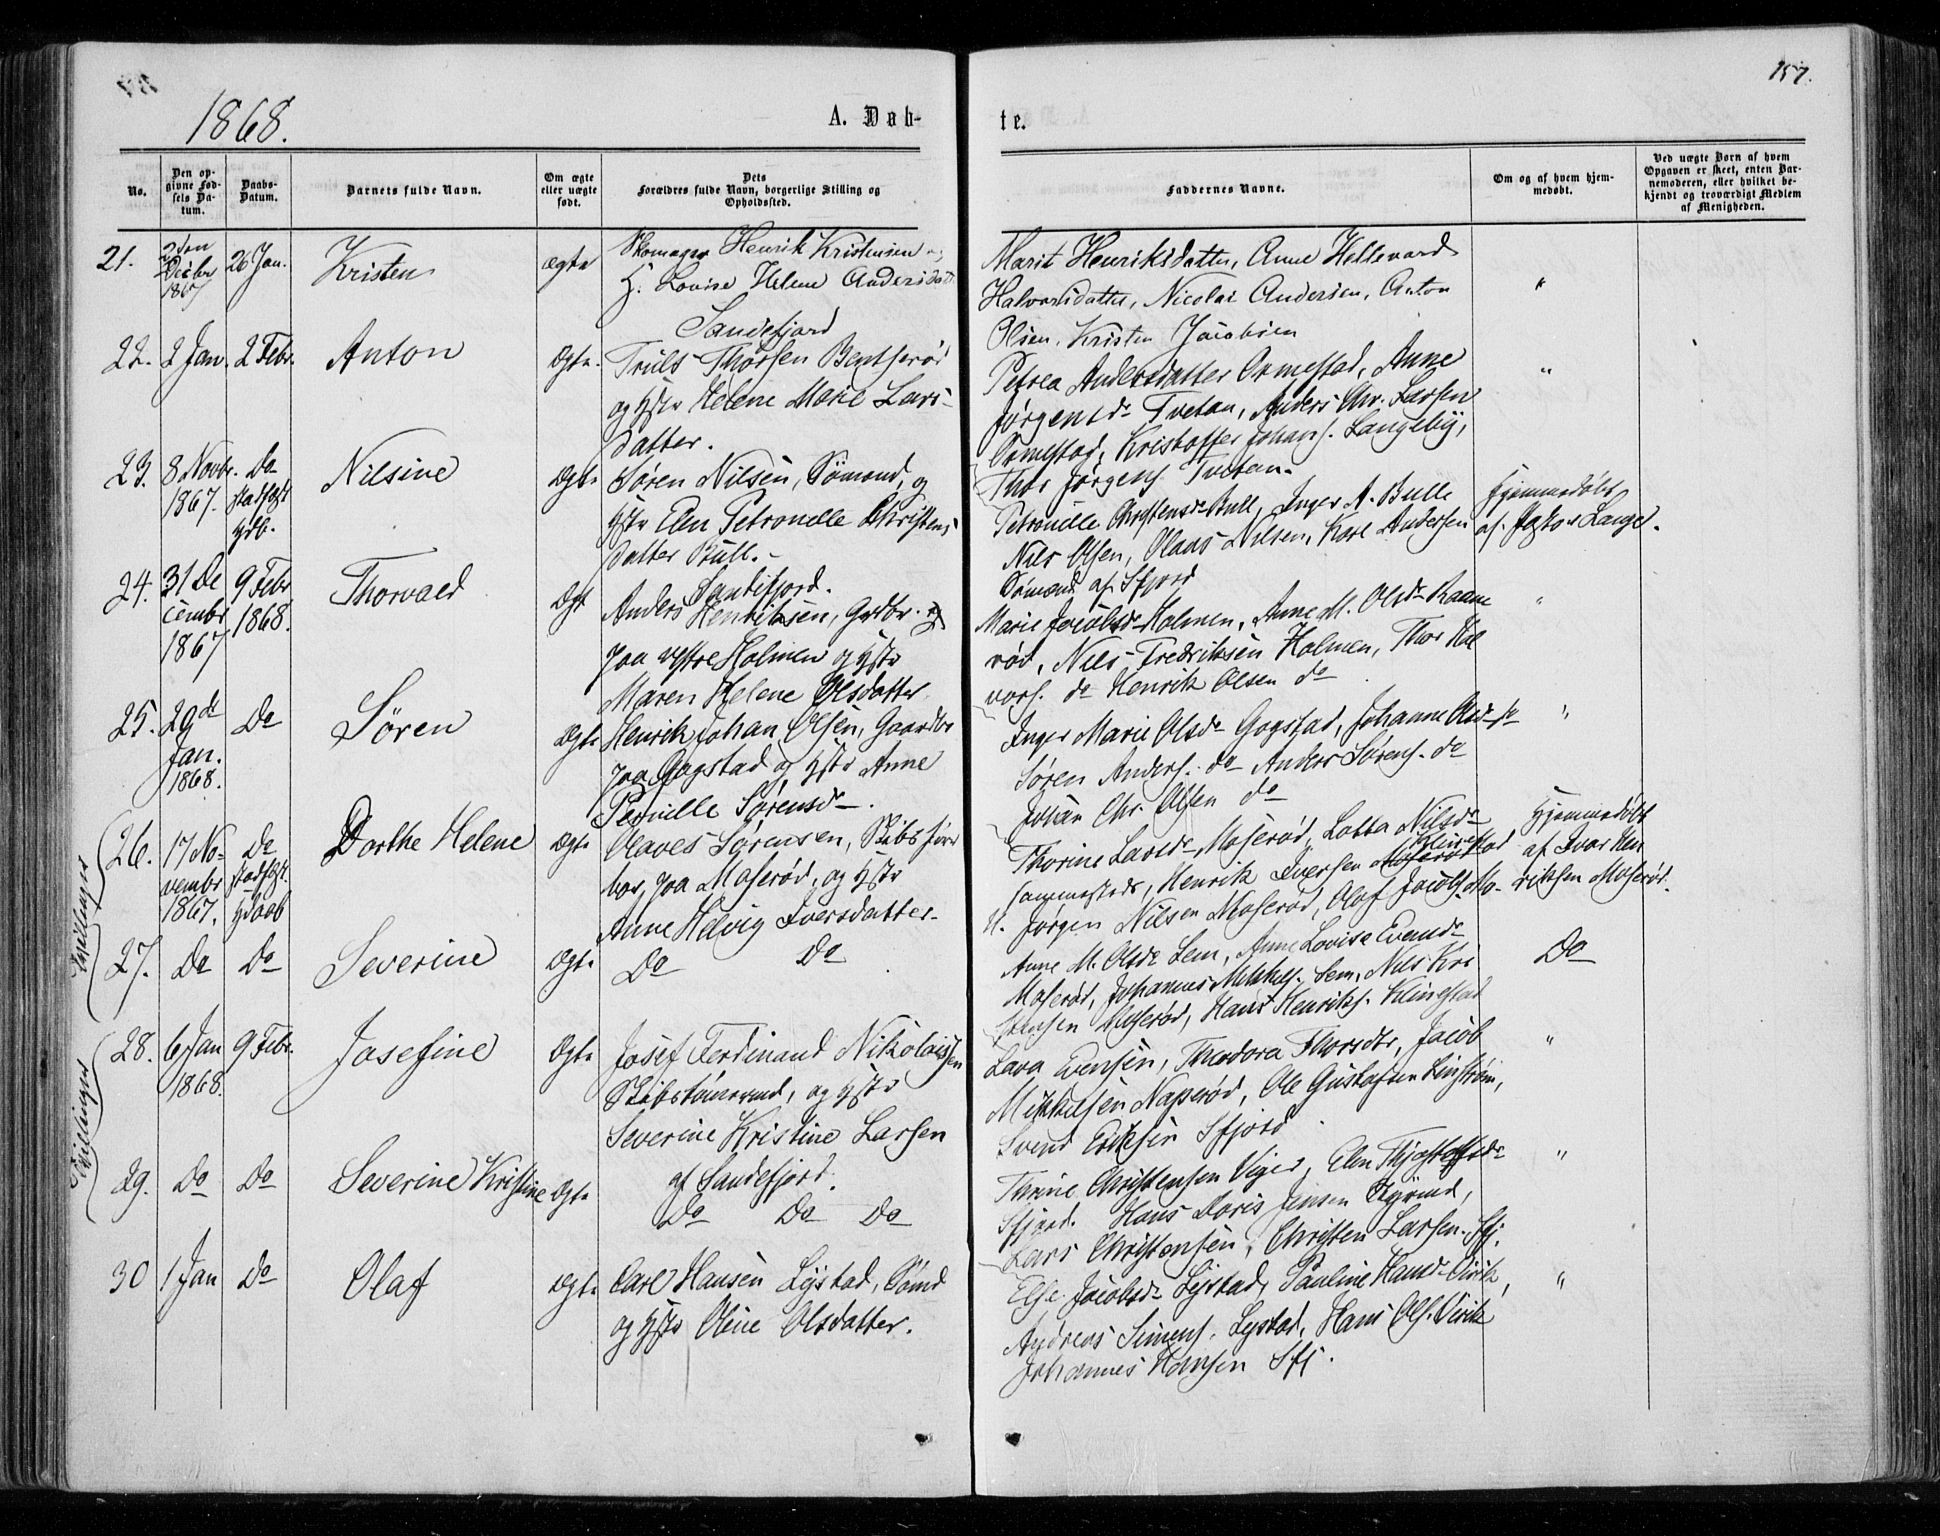 157.
1868.
A. Døb-
te.
No.
Den op-
givne Fød-
sels Da-
tum.
Daabs-
Datum.
Barnets fulde Navn.
Om ægte
eller uægte
født.
Dets
Forældres fulde Navn, borgerlige Stilling og
Opholdssted.
Faddernes Navne.
Om og af hvem hjem-
medøbt.
Ved uægte Børn af hvem
Opgaven er skeet, enten Bar-
nemoderen, eller hvilket be-
kjendt og troværdigt Medlem
af Menigheden.
21.
2den
Decbr
1867
26 Jan.
Kristen
ægte
Skomager Henrik Kristensen
H. Lovise Helene Andersdatt.
Sandefjord
Marit Henriksdatter, Anne Hellevard
Halvorsdatter, Nicolai Andersen, Anton
Olsen, Kristen Jacobsen
"
22.
2 Jan.
2 Febr.
Anton
Ægte.
Truls Thorsen Bentserød
og Hstr Helene Marie Lars-
datter.
Petrea Andersdatter Ormestad, Anne
Jørgensdr Tvetan, Anders Chr. Larsen
Ormestad, Kristoffer Johans. Langeby,
Thor Jørgens. Tvetan.
"
23.
8 Novbr.
1867.
Do
stadfæst
Hdb.
Nilsine
Ægte
Søren Nilsen, Sømand, og
Hstr Elen Petronelle Christens-
datter Bull.
Sandefjord.
Petronelle Christensdr Bull, Inger A. Bulle
Nils Olsen, Olaus Nilsen, Karl Andersen
Sømænd af Sfjord
Hjemmedøbt
af Pastor Lange.
24.
31 De
cembr
1867
9 Febr
1868.
Thorvald
Ægt
Anders Henriksen, Grdbr. og
paa vestre Holmen og Hstr
Maren Helene Olsdatter
Marie Jacobsdr Holmen, Anne M. Olsdr Raane
rød, Nils Fredriksen Holmen, Thor Hal
vors. do Henrik Olsen do
"
25.
29de
Jan.
1868.
Do
Søren
Ægte
Henrik Johan Olsen, Gaardbr
paa Gogstad og Hstr Anne
Pernille Sørensdr.
Inger Marie Olsdr Gogstad, Johanne Olsdr do
Søren Anders. do Anders Sørens. do
Johan Chr. Olsen do
"
Tvillinger
26.
17 No-
vembr
1867.
Do
stadfæst.
Hdaab
Dorthe Helene
Ægte
Olaves Sørensen, Skibsføre
paa Moserød, og Hstr
Anne Helvig Iversdatter
Thorine Larsdr Moserød, Lotta Nilsdr
sammesteds, Henrik Iversen Klinestad
Jørgen Nilsen Moserød, Olaf Jacobs. Mo-
Hjemmedøbt
af Ivar Hen
riksen Moserød.
27.
Do
Do
Severine
Ægte
Do Do
Anne M. Olsdr Lem, Anne Lovise Evensdr
Moserød, Johannes Mikkels. Sem, Nils Kri
stensen Moserød, Hans Henriks. Klinestad
Do
Tvillinger
28.
6 Jan
1868.
9 Febr.
Josefine
Ægte
Josef Ferdinand Nikolaisen
Skibstømrmd, og Hstr
Severine Kristine Larsen
af Sandefjord.
Lava Evensen, Theodora Thorsdtr, Jacob
Mikkelsen Napserød, Ole Gustafsen Linstrøm,
Svend Eriksen Sfjord
"
29.
Do
Do
Severine Kristine
Ægte
Do Do Do
Thrine Christensen Veger, Elen Thjostolfsdr
Sfjord. Hans Doris Jensen
Lars Christensen, Christen Larsen. Sfj.
"
30
1 Jan
Do
Olaf
Ægte
Carl Hansen Lystad, Sømd
og Hstr Oline Olsdatter.
Else Jacobsdr Lystad, Pauline Hansdr Virik,
Andreas Simens. Lystad, Hans Ols. Virik
Johannes Hansen Sfj.
"